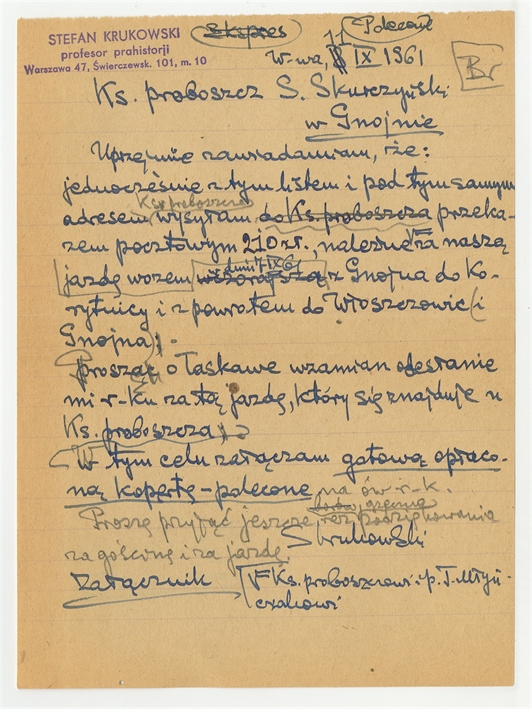 STEFAN KRUKOWSKI
profesor prahistorji
Warszawa 47, Świerczewsk. 101, m. 10
Ekspres
Polecony
W-wa, 11 IX 1961
Br
Ks. proboszcz S. Skurczyński
w Gnojnie
Uprzejmie zawiadamiam, że:
jednocześnie z tym listem i pod tym samym
Ks. proboszcza
adresem wysyłam do Ks. proboszcza przeka-
zem pocztowym 210 zł., należne za naszą
dnia 7 IX 61
jazdę wozem wczorajszą z Gnojna do Ko-
rytnicy i z powrotem do Włoszczowic (i
Gnojna).
prosząc o łaskawe wzamian odesłanie
mi r-ku za tą jazdę, który się znajduje u
Ks. proboszcza.
W tym celu załączam gotową opłaco-
ną kopertę - polecone na ów r-k.
Proszę przyjąć jeszcze podziękowania
za gościnę i za jazdę.
SKrukowski
Załącznik
Ks. proboszczowi i p. T. Młyń-
czakowi